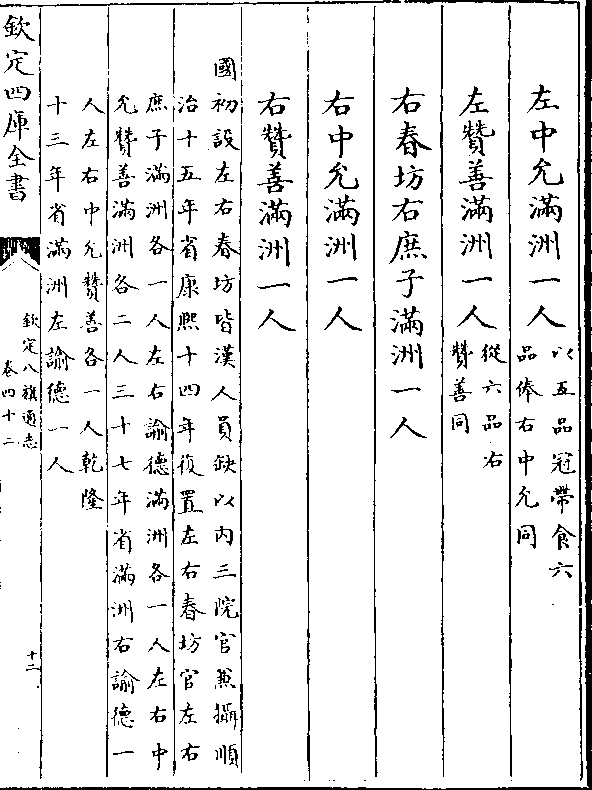 左中允滿洲一人以五品冠帶食六
品俸右中允同
左贊善滿洲一人從六品右
贊善同
右春坊右庶子滿洲一人
右中允滿洲一人
右贊善滿洲一人
國初設左右春坊皆漢人員缺以内三院官兼攝順
治十五年省康熙十四年復置左右春坊官左右
庶子滿洲各一人左右諭德滿洲各一人左右中
允贊善滿洲各二人三十七年省滿洲右諭德一
人左右中允贊善各一人乾隆
十三年省滿洲左諭德一人
欽定四庫全書
欽定八旗通志
卷四十二
十二